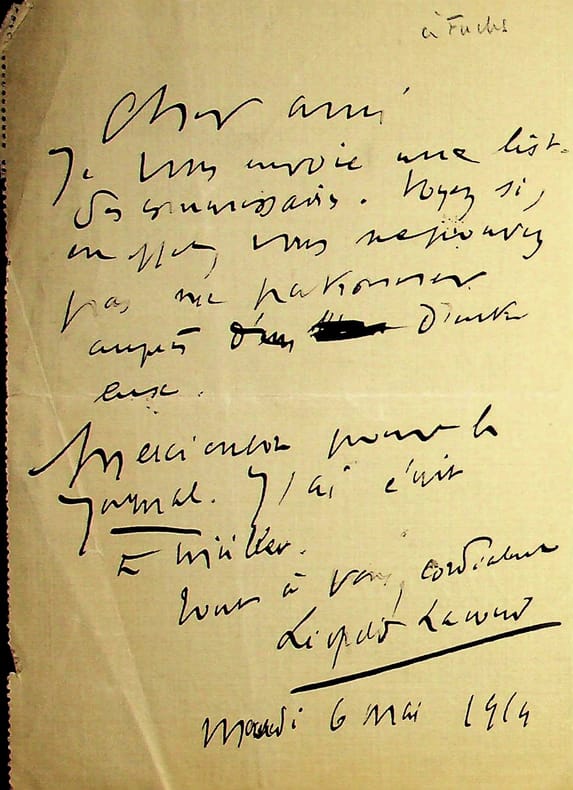 à Fuchs
Cher ami
Je vous envoie une liste
des commissaires. Voyez si,
en effet, vous ne pouvez
pas me patronner
auprès d'un d'entre
eux.
Merci encore pour le
Journal. J'ai écrit
à
Tout à vous, cordialement
Léopold Lacour
Mardi 6 mai 1919